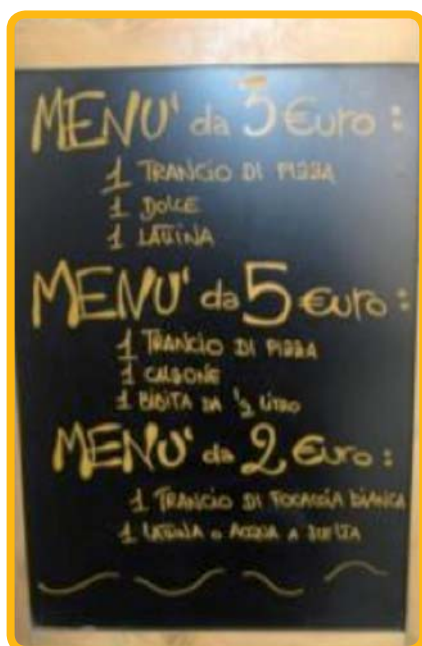 MENU' da 3 €uro:
1 TRANCIO DI PIZZA
1 DOLCE
1 LATTINA
MENU' da 5 €uro:
1 TRANCIO DI PIZZA
1 CALZONE
1 BIBITA DA ½ LITRO
MENU' da 2 €uro:
1 TRANCIO DI FOCACCIA BIANCA
1 LATTINA o ACQUA A SCELTA